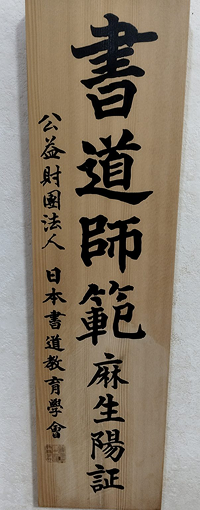 書道師範 麻生陽証
公益財團法人 日本書道教育學會